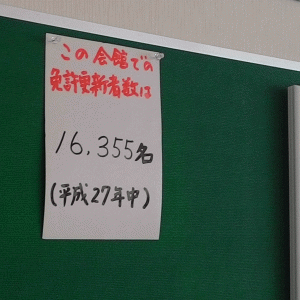 この会館での
免許更新者数は
16,355名
(平成27年中)